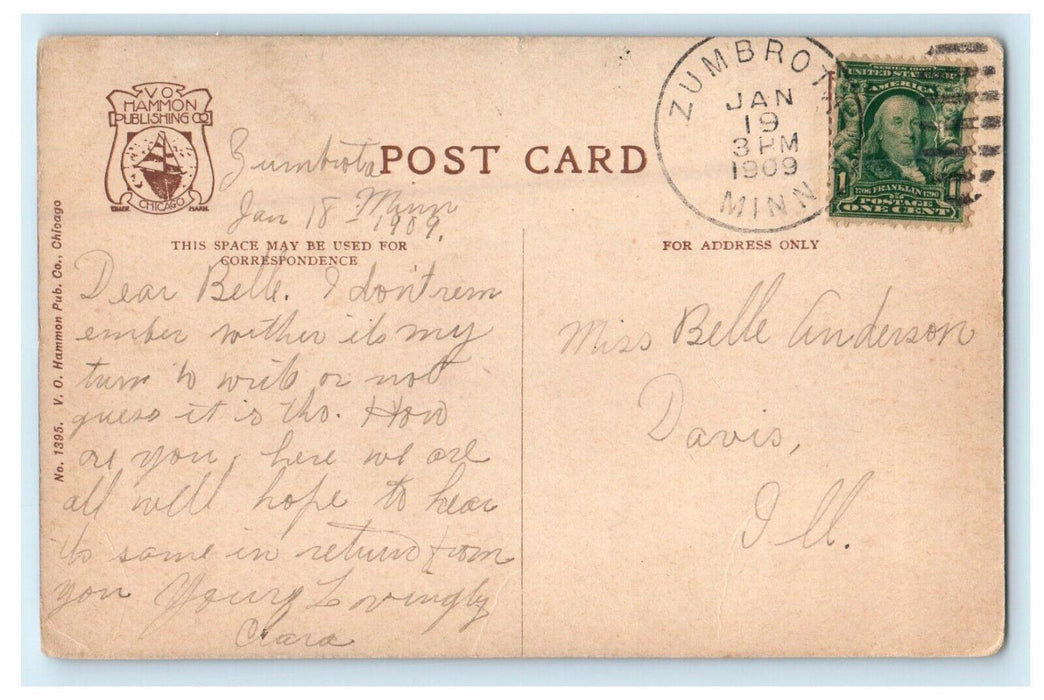 V O
HAMMON
PUBLISHING CO
CHICAGO
TRADE MARK
POST CARD
ZUMBROTA
JAN
19
3 PM
1909
MINN.
SERIES 1902
UNITED STATES OF
AMERICA
1706 FRANKLIN 1790
1 POSTAGE 1
ONE CENT
Zumbrota
Minn
Jan 18 1909.
THIS SPACE MAY BE USED FOR
CORRESPONDENCE
FOR ADDRESS ONLY
No. 1395. V. O. Hammon Pub. Co., Chicago
Dear Belle. I don't rem
ember wither its my
turn to write or not
guess it is tho. How
are you, here we are
all well hope to hear
its same in return from
you Yours Lovingly
Clara
Miss Belle Anderson
Davis,
Ill.